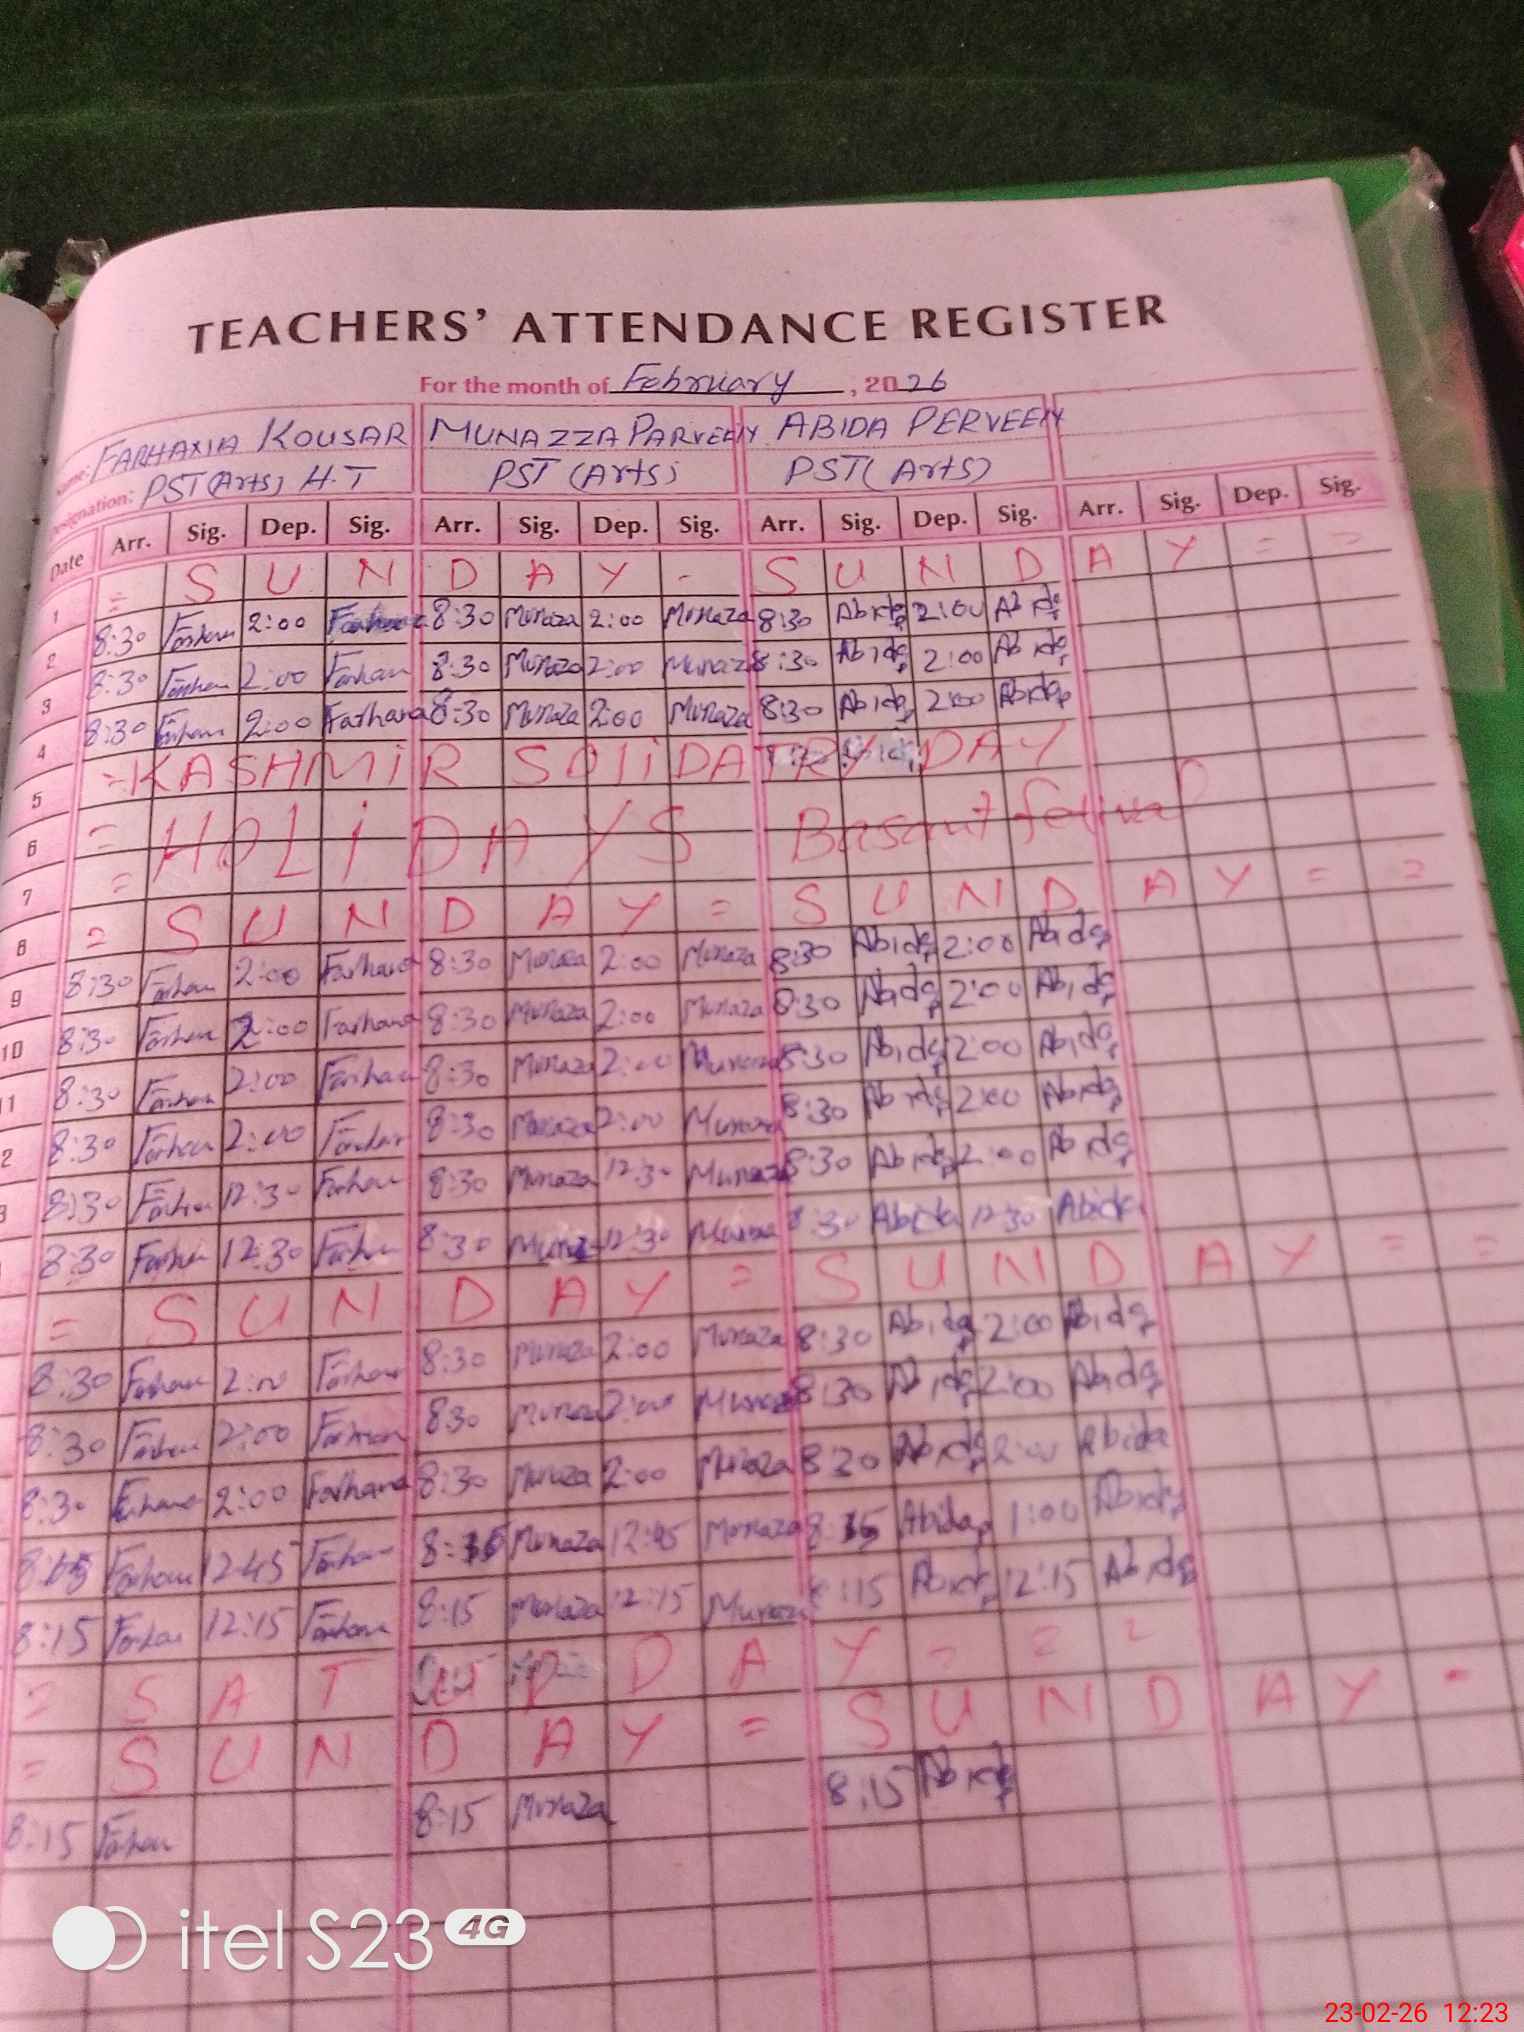 TEACHERS' ATTENDANCE REGISTER
For the month of February, 2026
Name: FARHANA KOUSAR MUNAZZA PARVEEN ABIDA PERVEEN
Designation: PST(Arts) H.T PST (Arts) PST (Arts)
Date Arr. Sig. Dep. Sig. Arr. Sig. Dep. Sig. Arr. Sig. Dep. Sig. Arr. Sig. Dep. Sig.
1 = S U N D A Y - S U N D A Y = =
2 8:30 Farhana 2:00 Farhana 8:30 Munaza 2:00 Munaza 8:30 Abida 2:00 Abida
3 8:30 Farhana 2:00 Farhana 8:30 Munaza 2:00 Munaza 8:30 Abida 2:00 Abida
4 8:30 Farhana 2:00 Farhana 8:30 Munaza 2:00 Munaza 8:30 Abida 2:00 Abida
5 = KASHMiR SOliDATRY DAY
6 = HOLiDAYS Basant
7 =
8 = S U N D A Y = S U N D A Y = =
9 8:30 Farhana 2:00 Farhana 8:30 Munaza 2:00 Munaza 8:30 Abida 2:00 Abida
10 8:30 Farhana 2:00 Farhana 8:30 Munaza 2:00 Munaza 8:30 Abida 2:00 Abida
11 8:30 Farhana 2:00 Farhana 8:30 Munaza 2:00 Munaza 8:30 Abida 2:00 Abida
2 8:30 Farhana 2:00 Farhana 8:30 Munaza 2:00 Munaza 8:30 Abida 2:00 Abida
3 8:30 Farhana 12:30 Farhana 8:30 Munaza 12:30 Munaza 8:30 Abida 2:00 Abida
8:30 Farhana 12:30 Farhana 8:30 Munaza 12:30 Munaza 8:30 Abida 12:30 Abida
= S U N D A Y = S U N D A Y = =
8:30 Farhana 2:00 Farhana 8:30 Munaza 2:00 Munaza 8:30 Abida 2:00 Abida
8:30 Farhana 2:00 Farhana 8:30 Munaza 2:00 Munaza 8:30 Abida 2:00 Abida
8:30 Farhana 2:00 Farhana 8:30 Munaza 2:00 Munaza 8:30 Abida 2:00 Abida
Farhana 12:45 Farhana Munaza 12:45 Munaza Abida 1:00 Abida
8:15 Farhana 12:15 Farhana 8:15 Munaza 12:15 Munaza 8:15 Abida 12:15 Abida
= S A T D A Y = = =
= S U N D A Y = S U N D A Y =
8:15 Farhana 8:15 Munaza 8:15 Abida
itel S23 4G
23-02-26 12:23